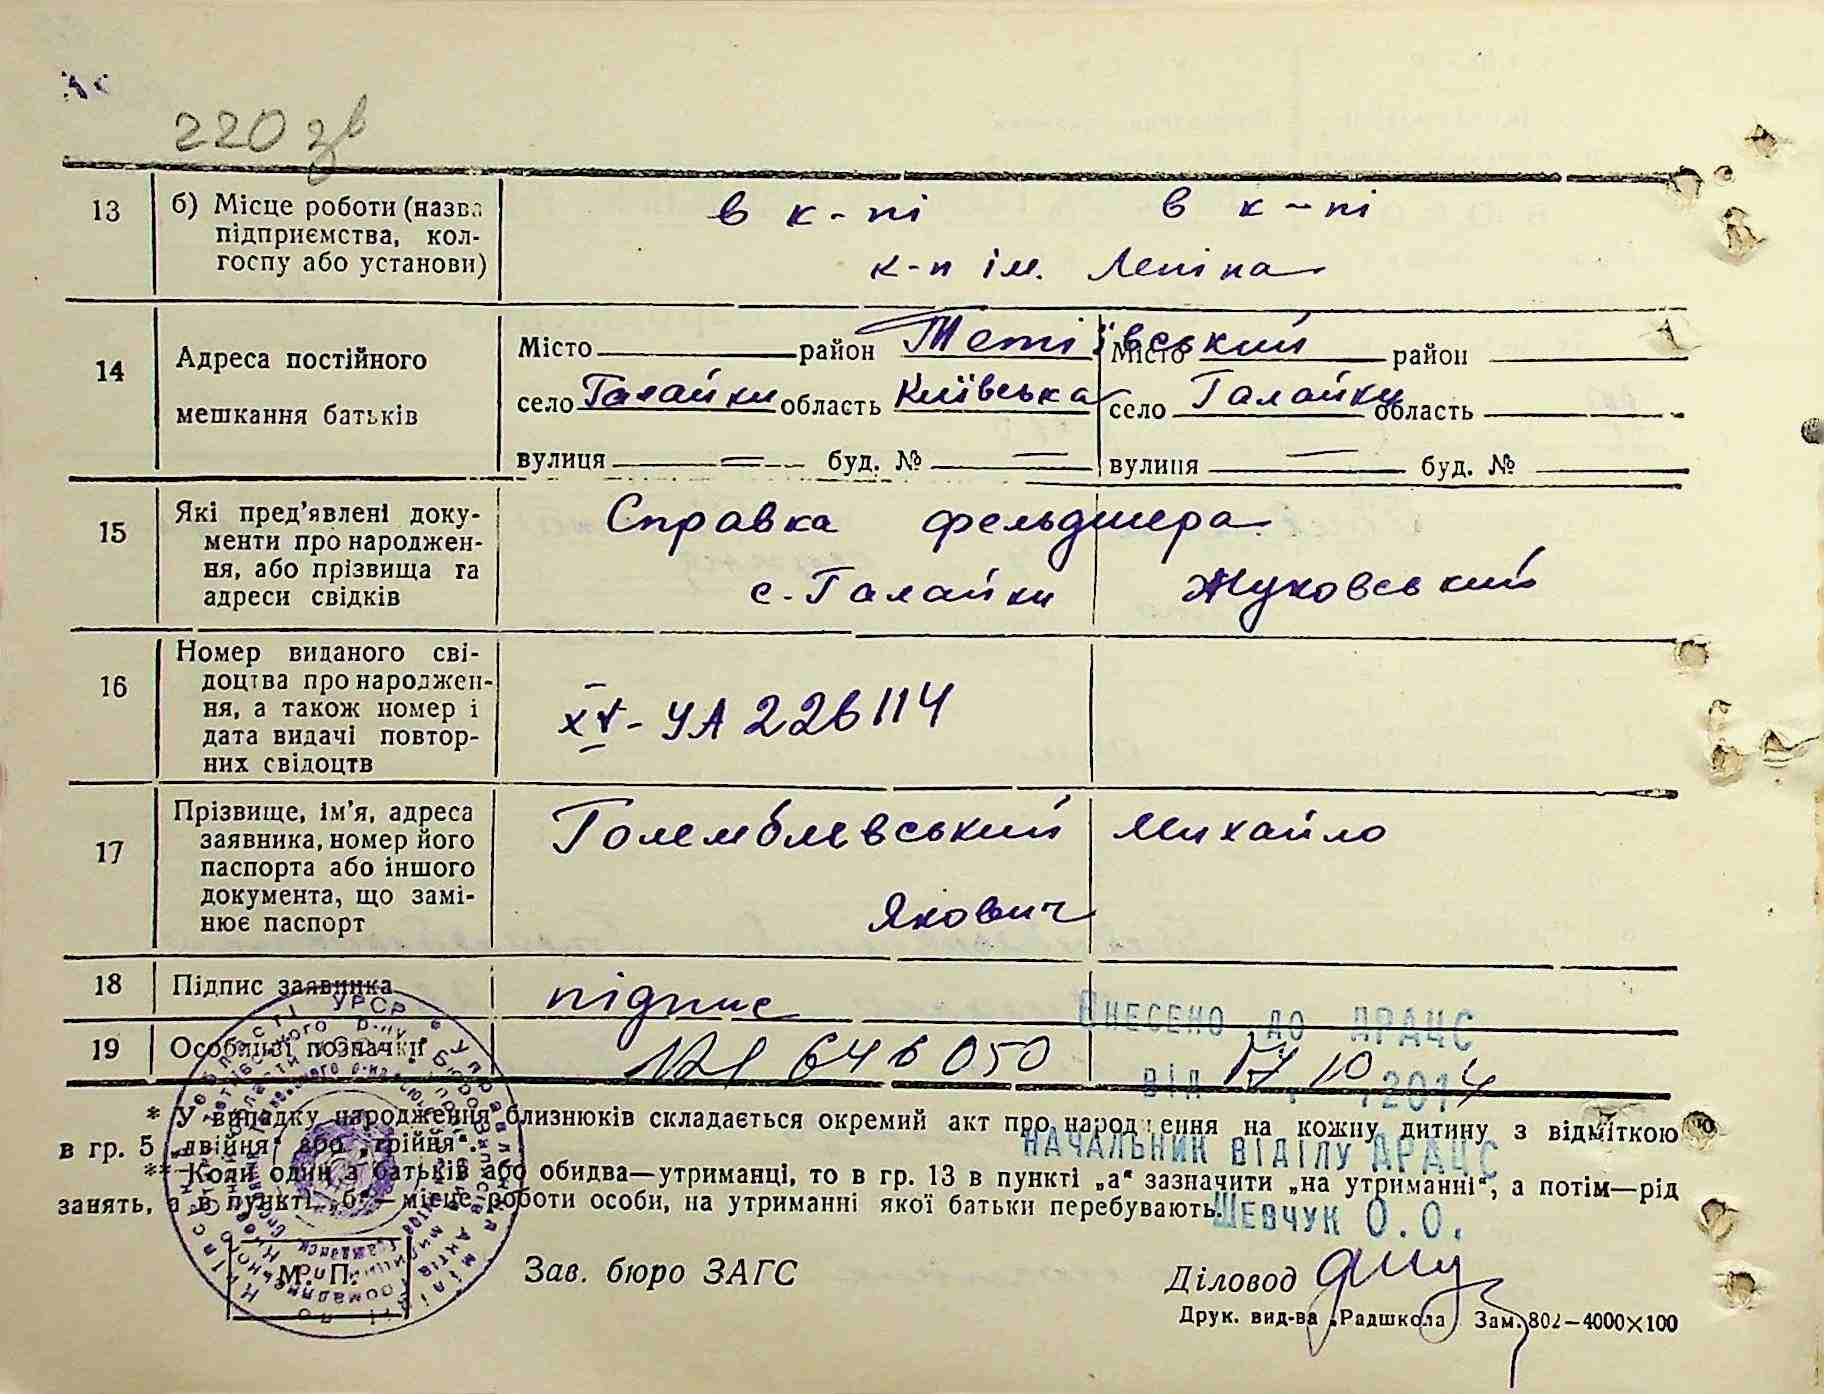 220 зв
13 б) Місце роботи (назва підприємства, колгоспу або установи)
в к-пі в к-пі
к-п ім. Леніна
14 Адреса постійного мешкання батьків
Місто район Тетіївський Місто район
село Галайки область Київська село Галайки область
вулиця — буд. № — вулиця — буд. №
15 Які пред'явлені доку-
менти про народжен-
ня, або прізвища та
адреси свідків
Справка фельдшера
с. Галайки Жуковський
16 Номер виданого сві-
доцтва про народжен-
ня, а також номер і
дата видачі повтор-
них свідоцтв
XV-УА 226114
17 Прізвище, ім'я, адреса
заявника, номер його
паспорта або іншого
документа, що замі-
нює паспорт
Големблевський Михайло
Якович
18 Підпис заявника
підпис
19 Особливі позначки
№ 646050
ВНЕСЕНО ДО ДРАЦС
ВІД 17 10 2014
* У випадку народження близнюків складається окремий акт про народження на кожну дитину з відміткою
в гр. 5 „двійня“ або „трійня“.
** Коли один з батьків або обидва—утриманці, то в гр. 13 в пункті „а“ зазначити „на утриманні“, а потім—рід
занять, а в пункті „б“—місце роботи особи, на утриманні якої батьки перебувають.
НАЧАЛЬНИК ВІДІЛУ ДРАЦС
ШЕВЧУК О. О.
М. П.
Зав. бюро ЗАГС
Діловод
Друк. вид-ва „Радшкола“ Зам. 802—4000×100